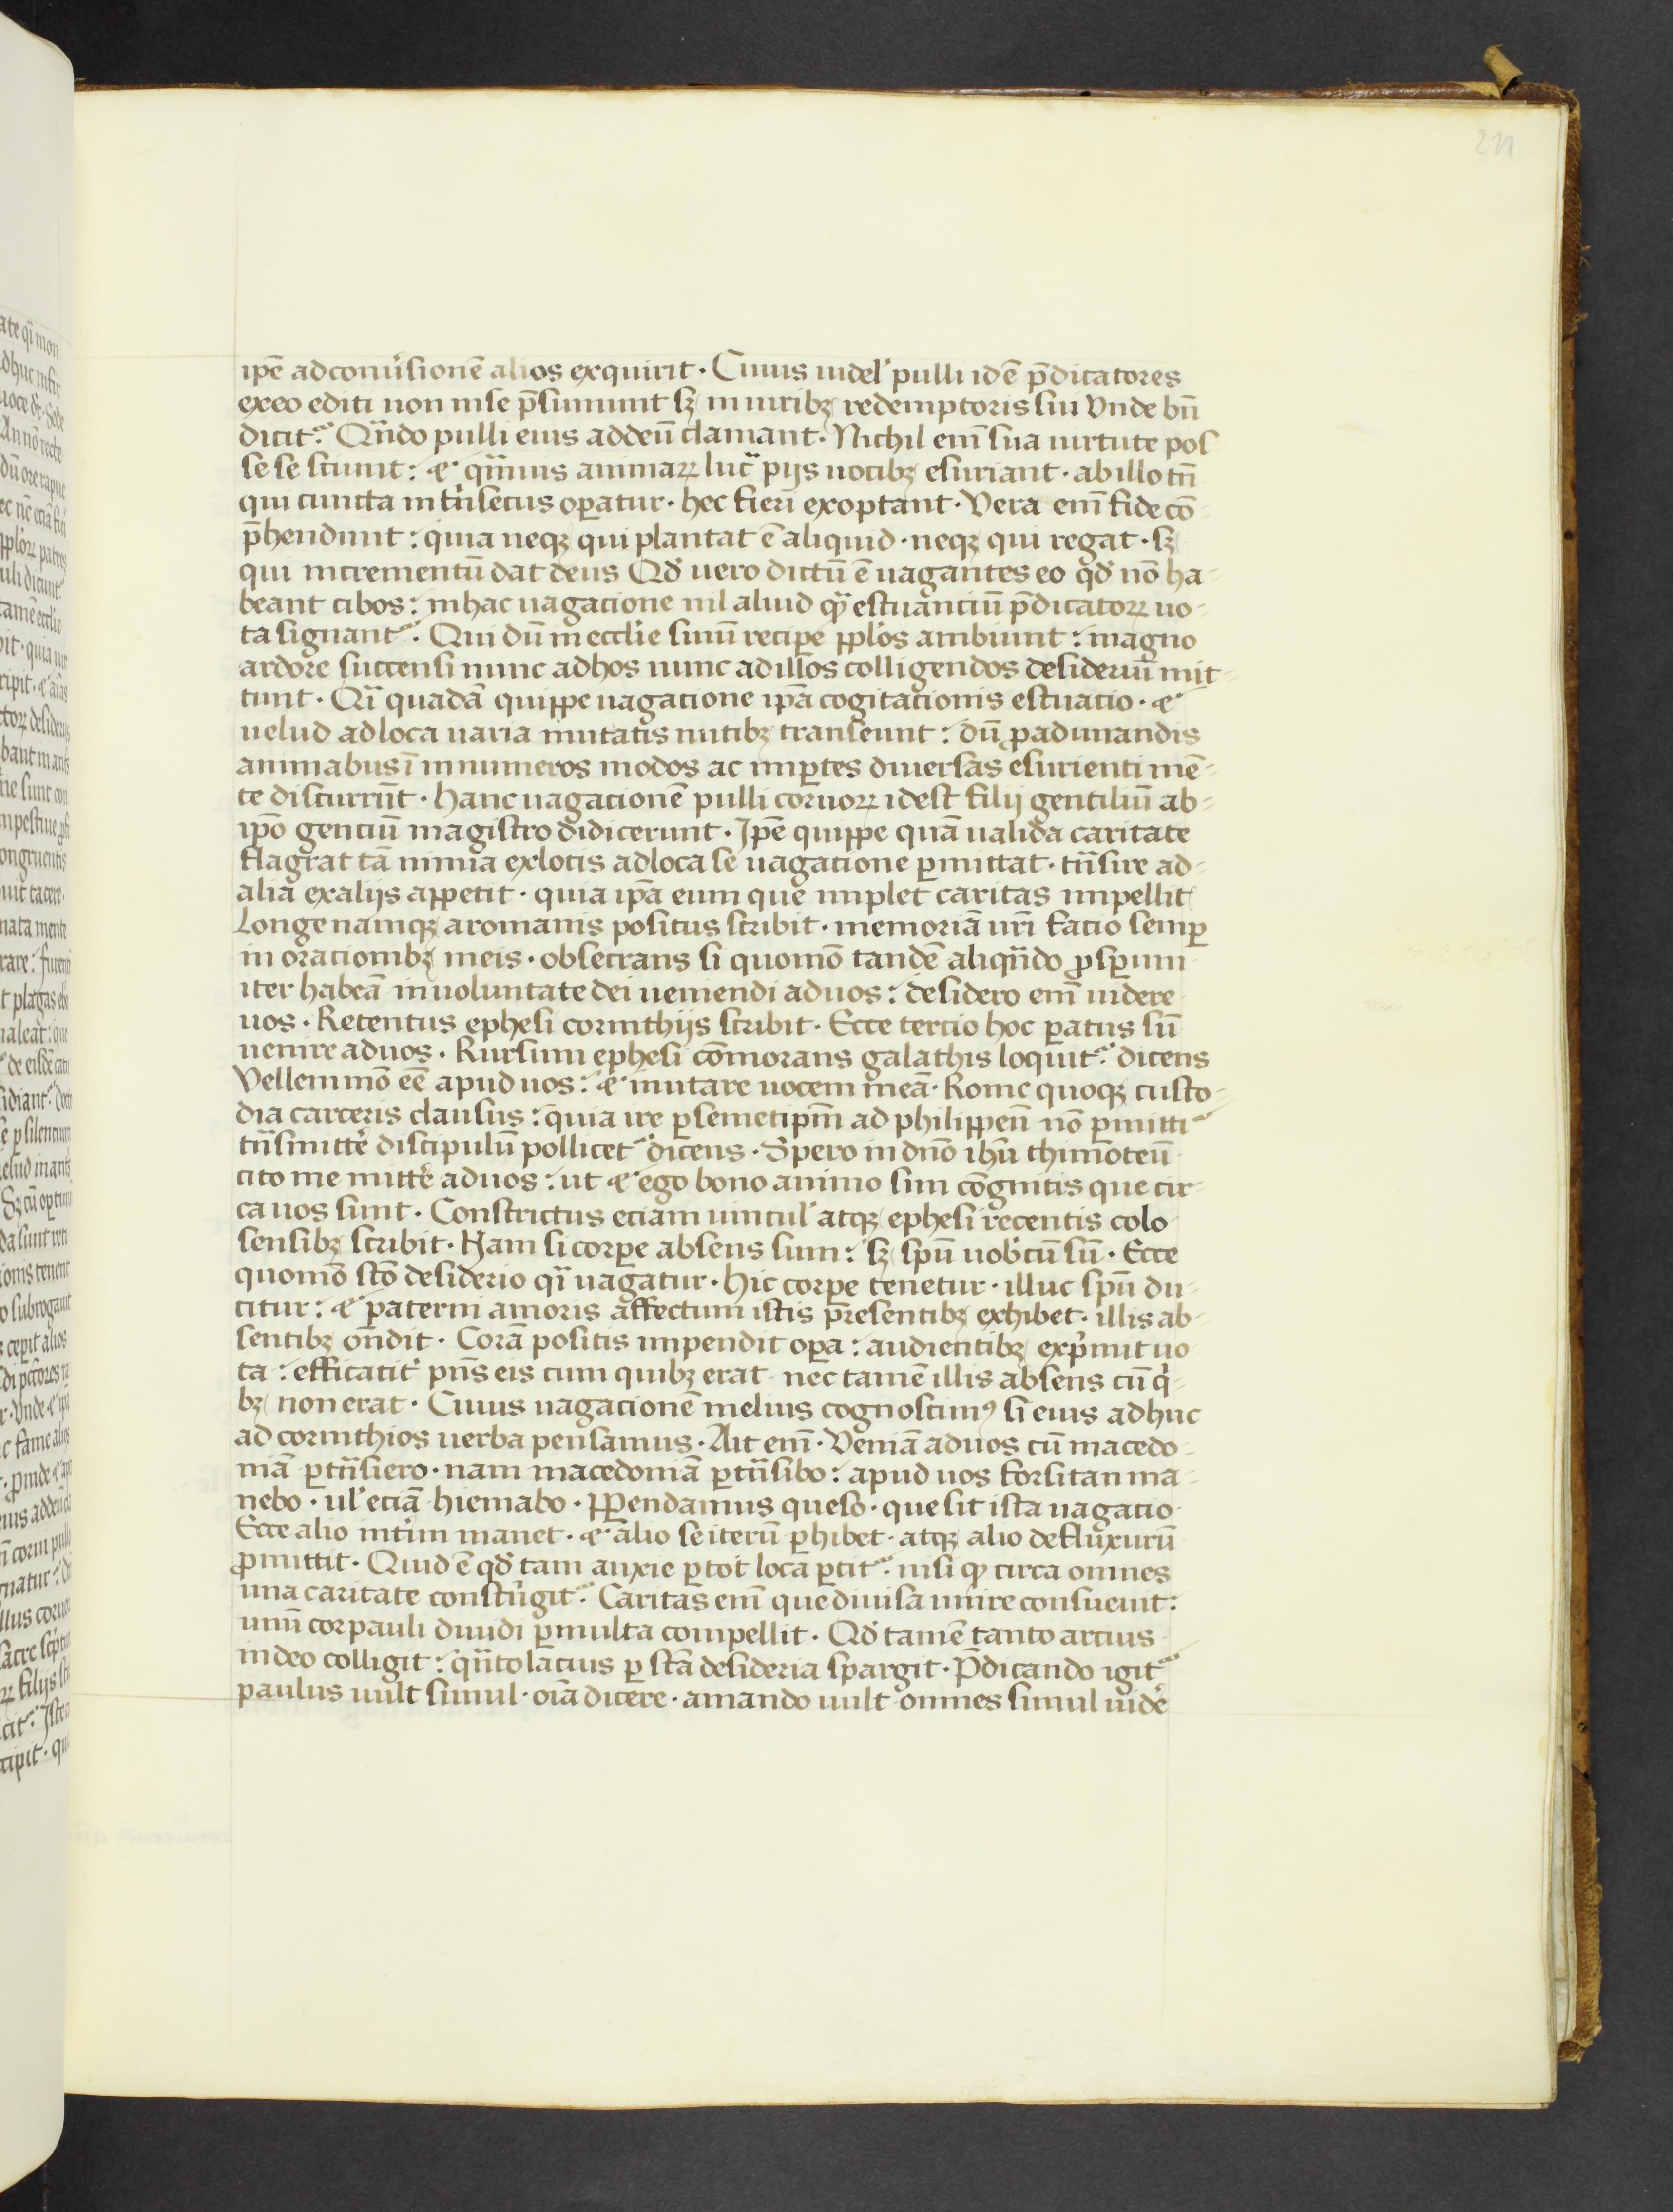 ip̄e ad conu̾sionē alios exquirit · Cuius uidel̾ pulli idē p̄dicatores
ex eo editi non in se p̄sumunt sꝫ in uiribꝫ redemptoris sui Vnde bn̄
dicit᷑ : Qn̄do pulli eius ad deū clamant · Nichil enī sua uirtute pos
se se sciunt : ⁊ qᷓmuis animaꝝ lucᷓ pijs uocibꝫ esuriant · ab illo tn̄
qui cuncta intᷓnsecus oꝑatur · hec fieri exoptant · Vera enī fide cō-
p̄hendunt : quia neqꝫ qui plantat ē aliquid · neqꝫ qui regat · sꝫ
qui incrementū dat deus Qd̾ uero dictū ē uagantes eo qd̾ nō ha-
beant cibos : in hac uagacione nil aliud qᷓ estuanciū p̄dicatoꝝ uo-
ta signant᷑ : Qui dū in eccl̾ie sinū recipe̾ ppl̾os ambiunt : magno
ardore succensi nunc ad hos nunc ad illos colligendos desideriū mit-
tunt · Qī quadā quippe uagacione ip̄a cogitacionis estuacio · ⁊
uelud ad loca uaria mutatis nutibꝫ transeunt : dū ꝓ adunandis
animabus ī innumeros modos ac in ꝑtes diuersas esurienti mē-
te discurrūt · Hanc uagacionē pulli coruoꝝ idest filij gentiliū ab-
ip̄o genciū magistro didicerunt · Ip̄e quippe quā ualida caritate
flagrat tā nimia ex locis ad loca se uagacione ꝑmittat · tᷓnsire ad-
alia ex alijs appetit · quia ip̄a eum que implet caritas impellit
Longe namqꝫ a romanis positus scribit · memoriā ur̄i facio semꝑ
in oracionibꝫ meis · obsecrans si quomō tandē aliqn̄do ꝓsperum
iter habeā in uoluntate dei ueniendi ad uos : desidero enī uidere
uos · Retentus ephesi corinthijs scribit · Ecce tercio hoc ꝑatus sū
uenire ad uos · Rursum ephesi cōmorans galathis loquit᷑ dicens
Vellem mō eē apud uos : ⁊ mutare uocem meā · Rome quoqꝫ custo-
dia carceris clausus : quia ire ꝑ semetip̄m ad philippen̄ nō ꝑmitti᷑
tᷓnsmitte̾ discipulū pollicet᷑ dicens · Spero in dn̄o ih̄u thimoteū
cito me mitte̾ ad uos : ut ⁊ ego bono animo sim cōgnitis que cir-
ca uos sunt · Constrictus eciam uincul̾ atqꝫ ephesi recentis colo
sensibꝫ scribit · Nam si corꝑe absens sum : sꝫ spū uob̾cū sū · Ecce
quomō scō desiderio qī uagatur · hic corꝑe tenetur · illuc spū du-
citur : ⁊ paterni amoris affectum istis presentibꝫ exhibet · illis ab-
sentibꝫ on̄dit · Corā positis impendit oꝑa : audientibꝫ exp̾mit uo
ta : efficacit̾ pn̄s eis cum quibꝫ erat · nec tamē illis absens cū q̾-
bꝫ non erat · Cuius uagacionē melius cognoscimꝰ si eius adhuc
ad corinthios uerba pensamus · Ait enī · Veniā ad uos cū macedo-
niā ꝑtᷓnsiero · nam macedoniā ꝑtᷓnsibo : apud uos forsitan ma-
nebo · ul̾ eciā hiemabo · Ꝑpendamus queso · que sit ista uagacio
Ecce alio int̾im manet · ⁊ alio se iterū ꝑhibet · atqꝫ alio defluxurū
ꝓmittit · Quid ē qd̾ tam anxie ꝑ tot loca ꝑtit᷑ : nisi qꝫ circa omnes
una caritate const̾ngit᷑ : Caritas enī que diuisa unire consueuit :
unū cor pauli diuidi ꝑ multa compellit · Qd̾ tamē tanto arcius
in deo colligit : qᷓnto lacius ꝑ scā desideria spargit · P̄dicando igit᷑
paulus uult simul · oīa dicere · amando uult omnes simul uide̾